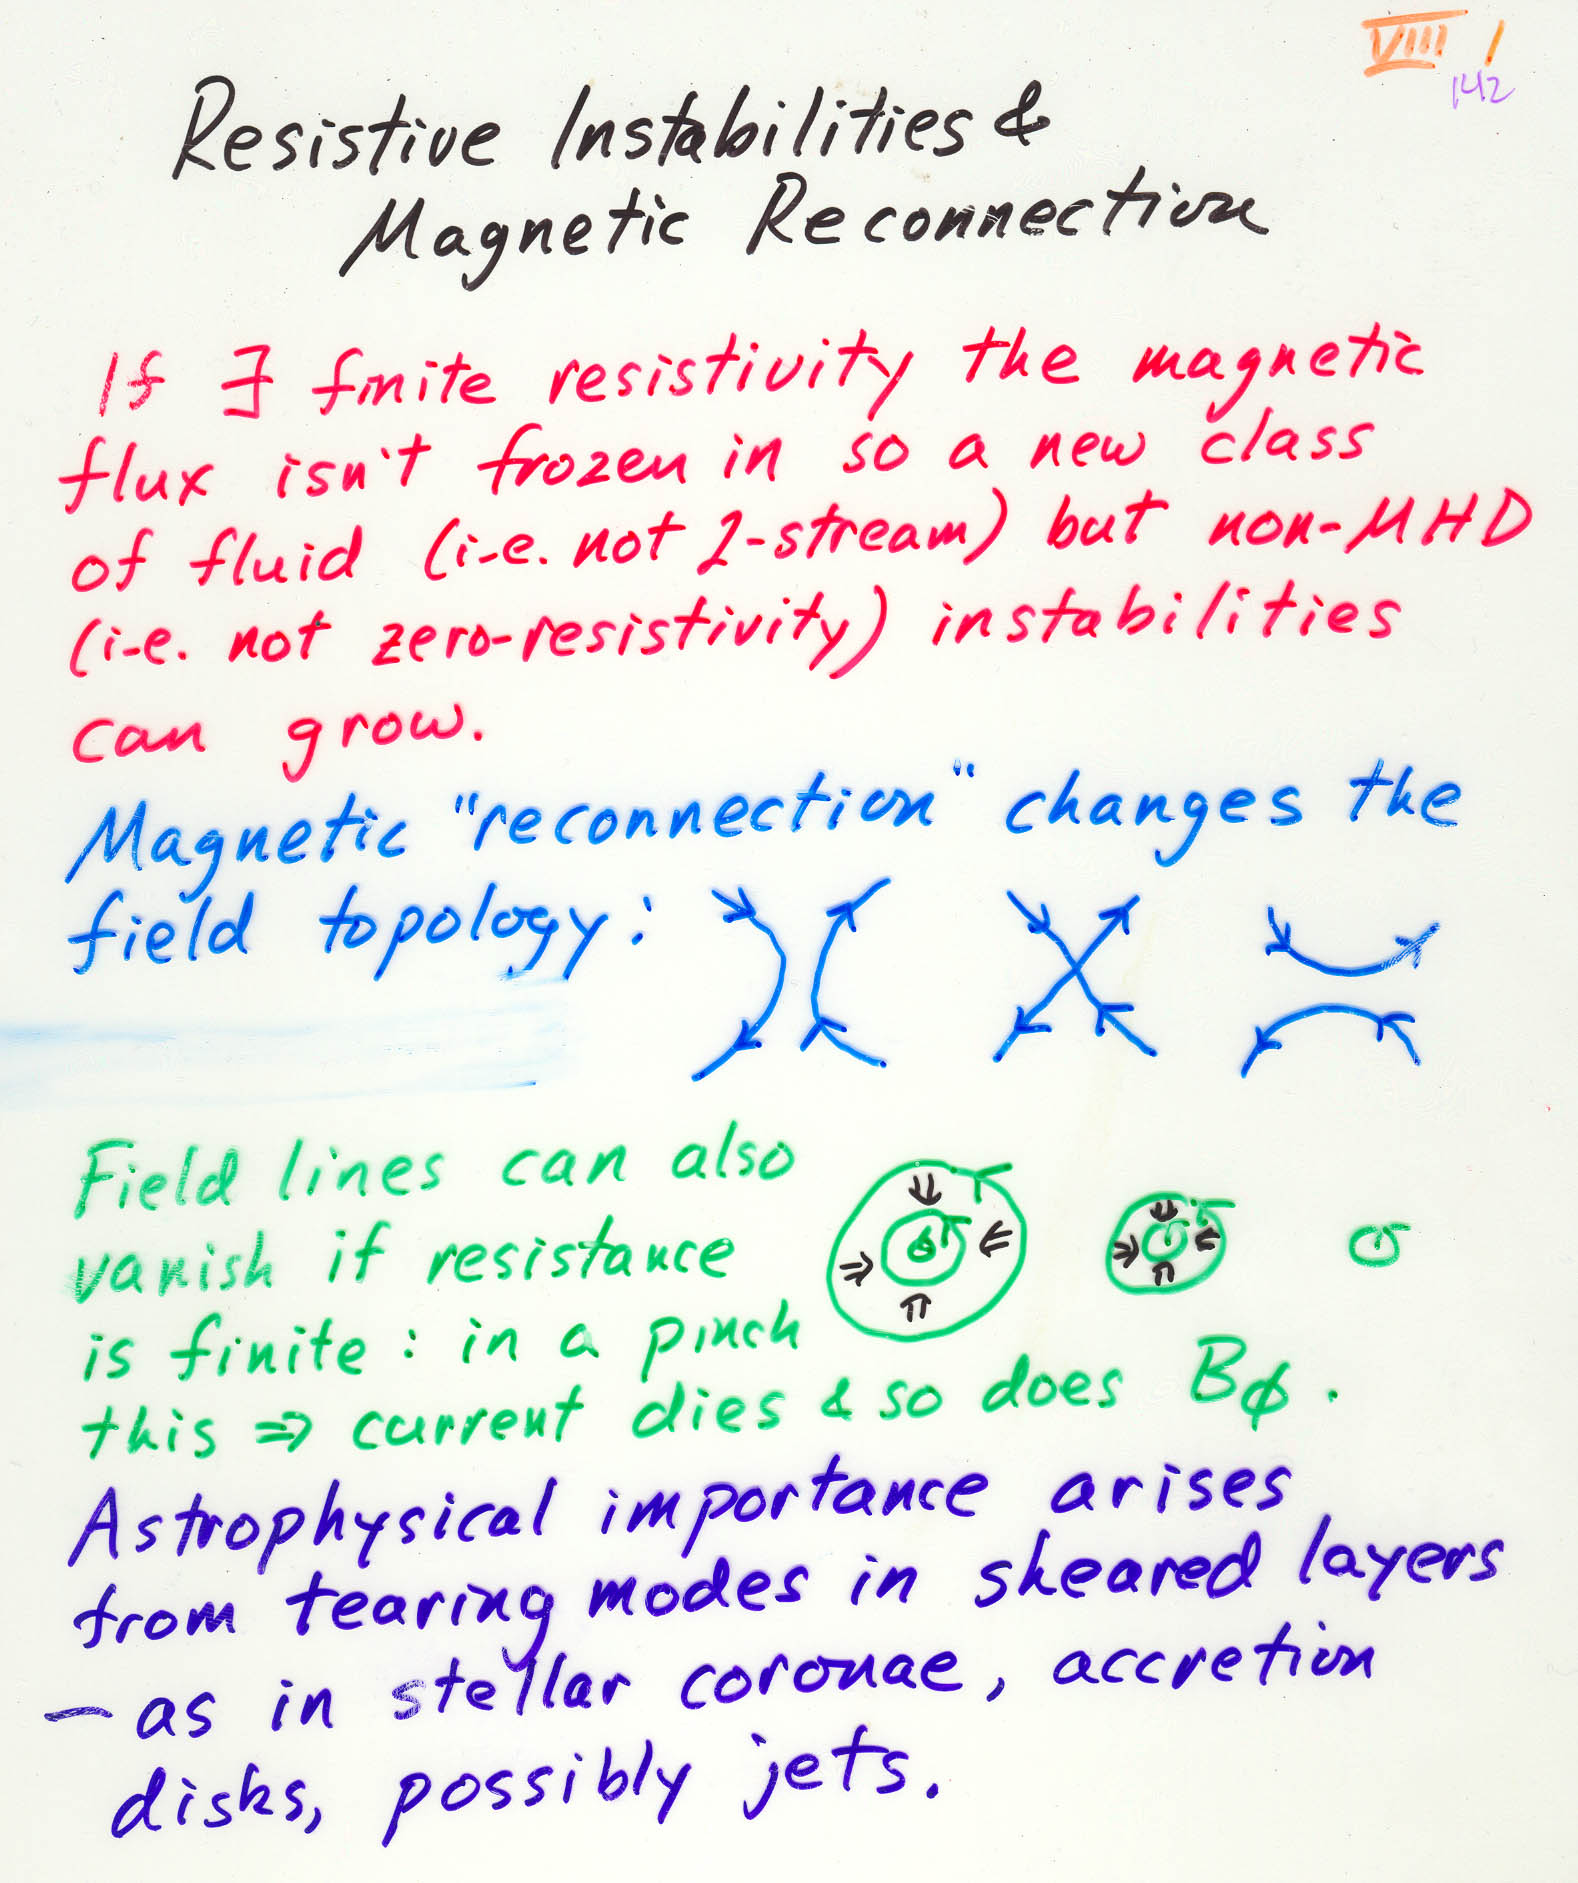 VIII 1
142
Resistive Instabilities &
Magnetic Reconnection
If ∃ finite resistivity the magnetic
flux isn't frozen in so a new class
of fluid (i.e. not 2-stream) but non-MHD
(i.e. not zero-resistivity) instabilities
can grow.
Magnetic "reconnection" changes the
field topology:
Field lines can also
vanish if resistance
is finite: in a pinch
this ⇒ current dies & so does Bϕ.
Astrophysical importance arises
from tearing modes in sheared layers
— as in stellar coronae, accretion
disks, possibly jets.